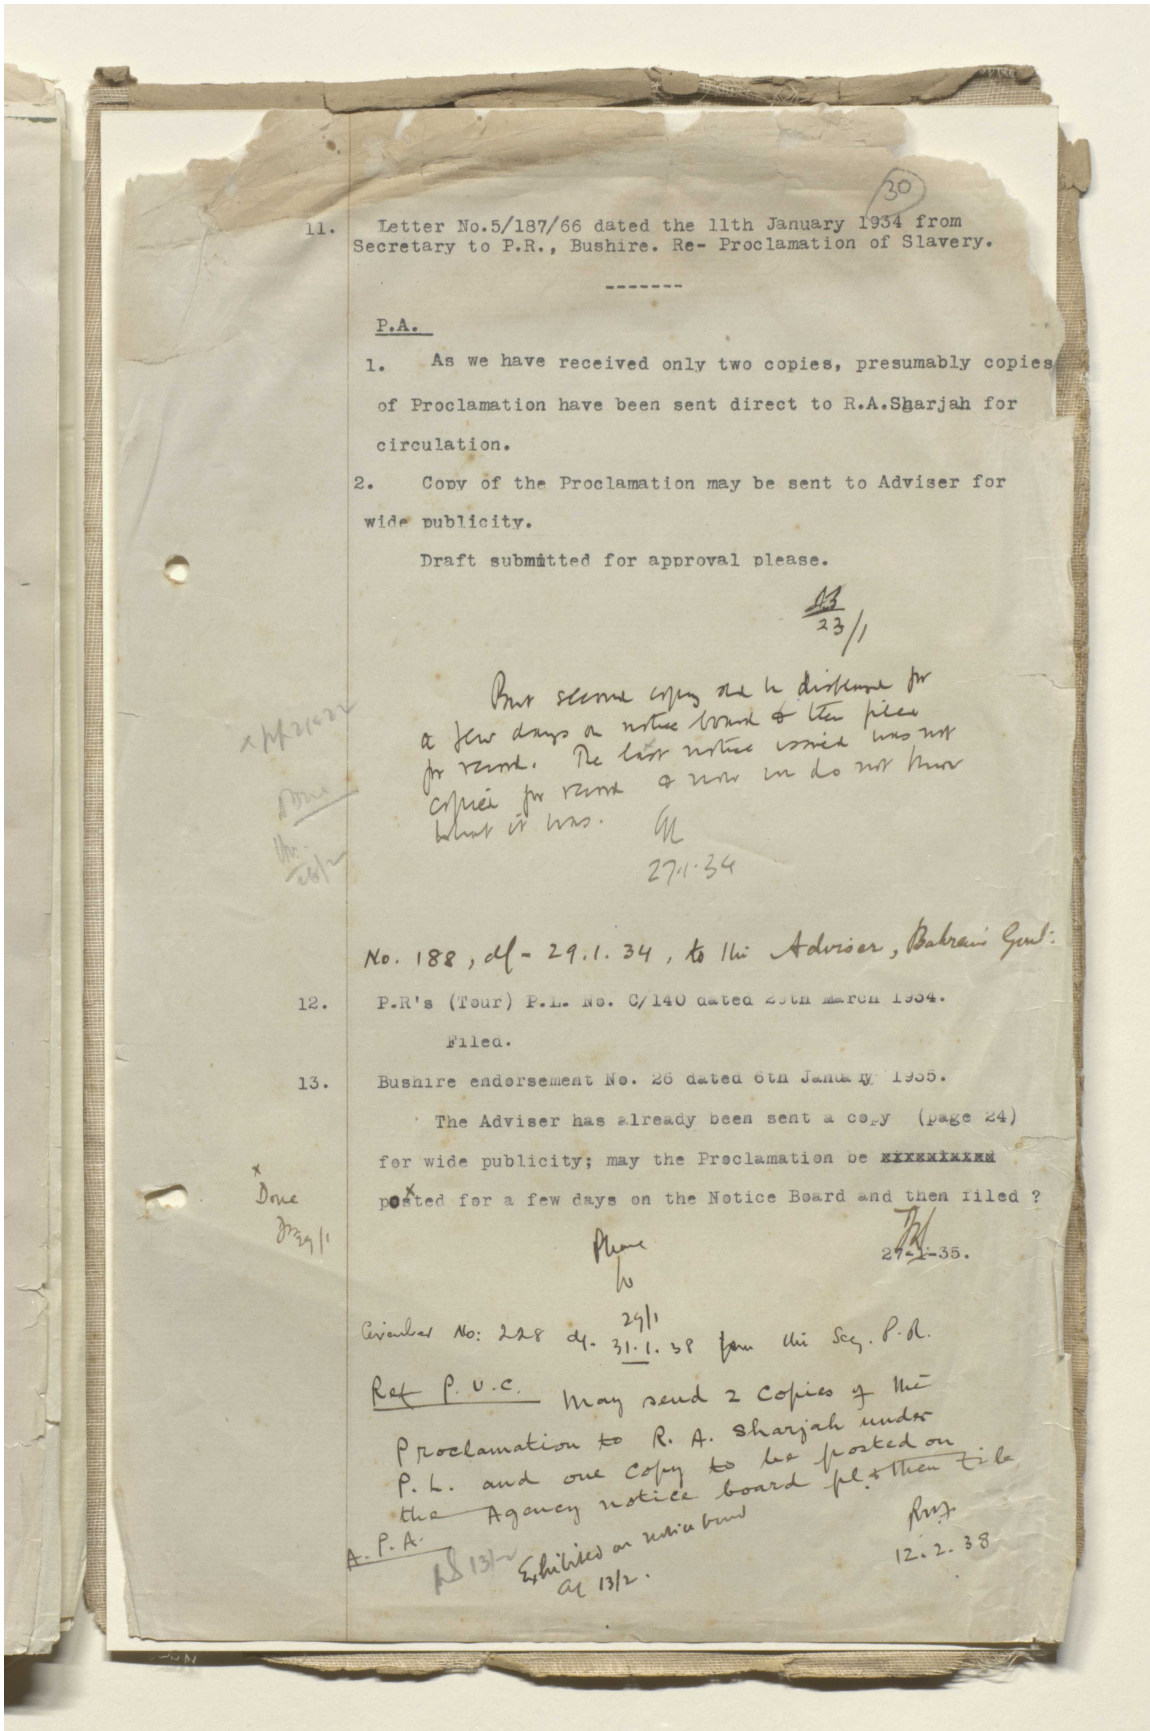 30
11. Letter No.5/187/66 dated the 11th January 1934 from
Secretary to P.R., Bushire. Re- Proclamation of Slavery.
-------
P.A.
1. As we have received only two copies, presumably copies
of Proclamation have been sent direct to R.A.Sharjah for
circulation.
2. Copy of the Proclamation may be sent to Adviser for
wide publicity.
Draft submitted for approval please.
23/1
But second copy shd be displayed for
a few days on notice board & then filed
for record. The last notice issued was not
copied for record & now we do not know
what it was.
27.1.34
Done
No. 188, d/- 29.1.34, to the Adviser, Bahrain Govt:
12. P.R's (Tour) P.L. No. C/140 dated 29th March 1934.
Filed.
13. Bushire endorsement No. 26 dated 6th January 1935.
The Adviser has already been sent a copy (page 24)
for wide publicity; may the Proclamation be xxxxxxxxxx
x
posted for a few days on the Notice Board and then filed ?
x
Done
29/1
27-1-35.
Please
29/1
Circular No: 228 d/- 31.1.38 from the Secy. P.R.
Ref P.U.C. May send 2 copies of the
Proclamation to R. A. Sharjah under
P. L. and one copy to be posted on
the Agency notice board pl. & then file
A.P.A.
13/2
Exhibited on notice board
13/2.
12.2.38